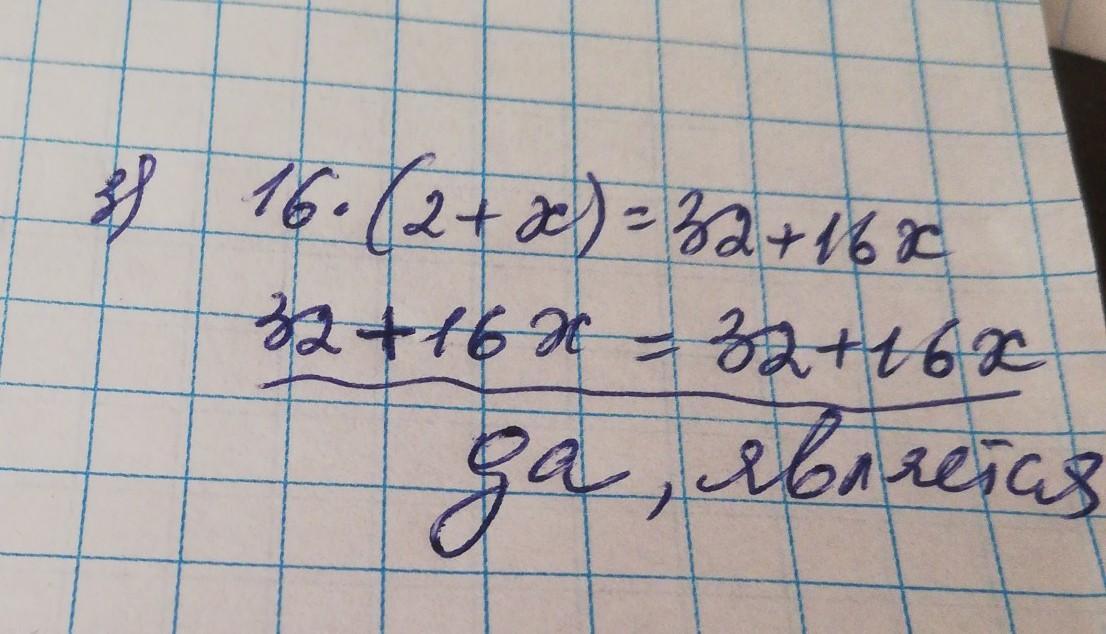 3) 16·(2+x)=32+16x
32+16x=32+16x
да, является